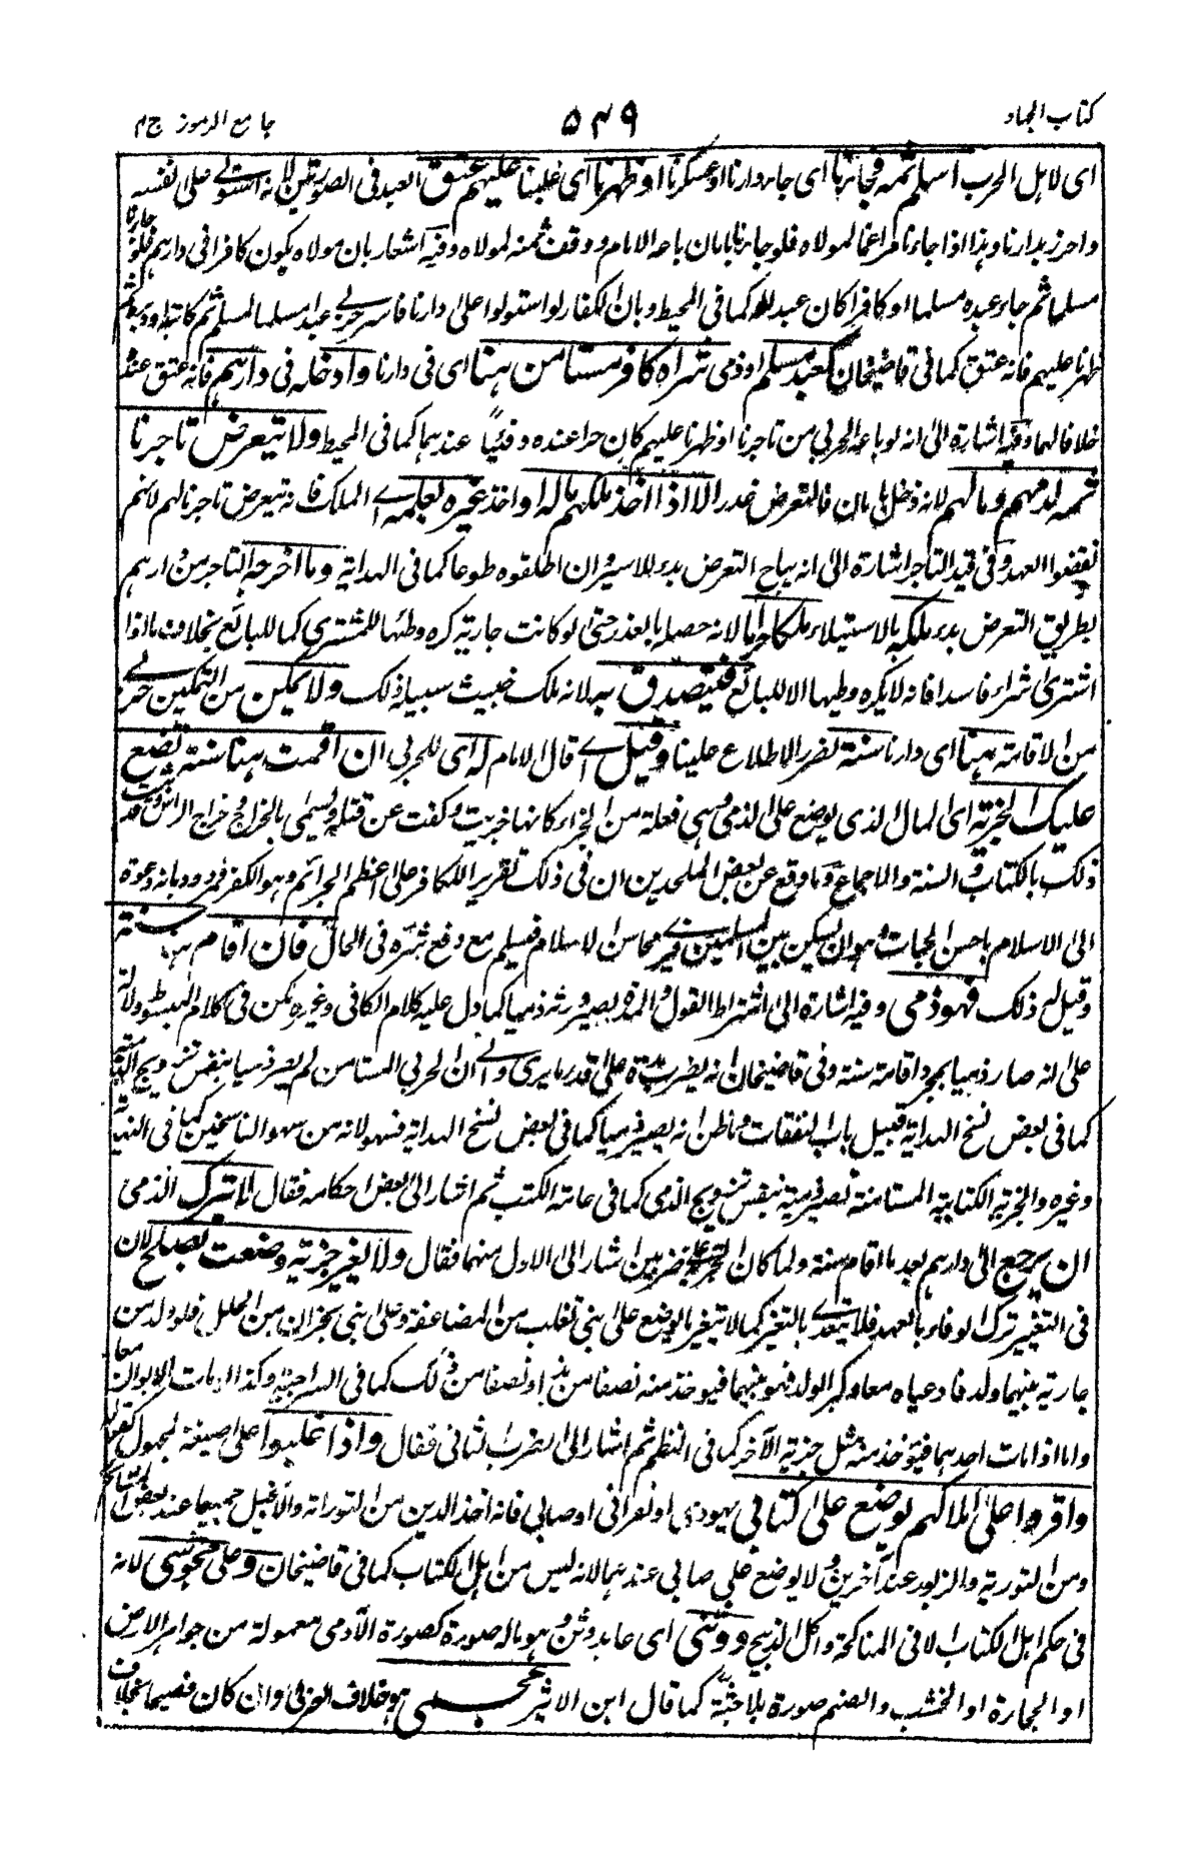 كتاب الجهاد ٥٤٩ جامع الرموز ج٣
اى لاهل الحرب اسلم ثمه فجاءنا اى جاء دارنا او عسكرنا او ظهرنا اى غلبنا عليهم عتق العبد فى الصورتين لانه استولى على نفسه
واحرز بدارنا وهذا اذا جاءنا مراغما لمولاه فلو جاءنا بامان باعه الامام ووقف ثمنه لمولاه وفيه اشعار بان مولاه يكون كافرا فى دارهم فلو جاءنا
مسلما ثم جاء عبده مسلما او كافرا كان عبدا له كما فى المحيط وبان الكفار لو استولوا على دارنا فاسر حربى عبدا مسلما لمسلم ثم كاتبه او دبره ثم
ظهرنا عليهم فانه عتق كما فى قاضيخان كعبد مسلم او ذمى شراه كافر مستامن هنا اى فى دارنا وادخله فى دارهم فانه عتق عنده
خلافا لهما وفيه اشارة الى انه لو باعه الحربى من تاجرنا او ظهرنا عليهم كان حرا عنده وفيئا عندهما كما فى المحيط ولا يتعرض تاجرنا
ثمه لدمهم ومالهم لانه دخل بامان فالتعرض غدر الا اذا اخذ ملكهم ماله او اخذ غيره بعلمه اى الملك فانه يتعرض تاجرنا لهم لانهم
نقضوا العهد وفى قيد التاجر اشارة الى انه يباح التعرض بدء للاسير وان اطلقوه طوعا كما فى الهداية وما اخرجه التاجر من دارهم
بطريق التعرض بدء ملكه بالاستيلاء ملكا حراما لانه حصله بالغدر حتى لو كانت جارية كره وطئها للمشترى كما للبائع بخلاف ما اذا
اشترى شراء فاسدا فانه لا يكره وطيها الا للبائع فيتصدق به لانه ملك خبيث سبيله ذلك ولا يمكن من التمكين حربى
من الاقامة هنا اى دارنا سنة لضرر الاطلاع علينا وقيل اى قال الامام له اى للحربى ان اقمت هنا سنة نضع
عليك الجزية اى المال الذى يوضع على الذمى وهى فعلة من الجزاء كانها جزيت وكفت عن قتله ويسمى بالخراج وخراج الراس وثبت
ذلك بالكتاب والسنة والاجماع وما وقع عن بعض الملحدين ان فى ذلك تقريرا للكافر على اعظم الجرائم وهو الكفر فمردود بانه دعوة
الى الاسلام باحسن الجهات وهو ان يسكن بين المسلمين فيرى محاسن الاسلام فيسلم مع دفع شره فى الحال فان اقام هنا سنة
وقيل له ذلك فهو ذمى وفيه اشارة الى اشتراط القول والمدة لصيرورته ذميا كما دل عليه كلام الكافى وغيره لكن فى كلام المبسوط دلالة
على انه صار ذميا بمجرد اقامته سنة وفى قاضيخان انه يضرب مدة على قدر ما يرى والى ان الحربى المستامن لم يصر ذميا بنفس تزويج الذمية
كما فى بعض نسخ الهداية قبيل باب النفقات وما ظن انه يصير ذميا كما فى بعض نسخ الهداية فسهو لانه من سهو الناسخين كما فى النهاية
وغيره والحربية الكتابية المستامنة تصير ذمية بنفس تزويج الذمى كما فى عامة الكتب ثم اشار الى بعض احكامه فقال لا يترك الذمى
ان يرجع الى دارهم بعد ما اقام سنة ولما كان الجزية على ضربين اشار الى الاول منهما فقال ولا يغير جزية وضعت بصلح لان
فى التغيير ترك الوفاء بالعهد فلا يتعدى بالتغيير كما لا يتغير ما يوضع على بنى تغلب من المضاعفة وعلى بنى نجران من الحلل فلو ولد من
جارية بينهما ولد فادعياه معا وكبر الولد فهو بينهما فيوخذ منه نصفا من هذا ونصفا من ذلك كما فى السراجية وكذا اذا مات الابوان معا
واما اذا مات احدهما فيؤخذ منه مثل جزية الآخر كما فى النظم ثم اشار الى الضرب الثانى فقال واذا غلبوا على صيغة المجهول كقوله
واقروا على املاكهم يوضع على كتابى يهودى او نصرانى او صابى فانه اخذ الدين من التوراة والانجيل جميعا عند بعض المشايخ
ومن التورية والزبور عند آخرين ولا يوضع على صابى عندهما لانه ليس من اهل الكتاب كما فى قاضيخان وعلى مجوسى لانه
فى حكم اهل الكتاب لا فى المناكحة واكل الذبيح ووثنى اى عابد وثن وهو ما له صورة كصورة الآدمى معمولة من جواهر الارض
او الحجارة او الخشب والصنم صورة بلا جثة كما قال ابن الاثير عجمى هو خلاف العربى وان كان فصيحا بخلاف